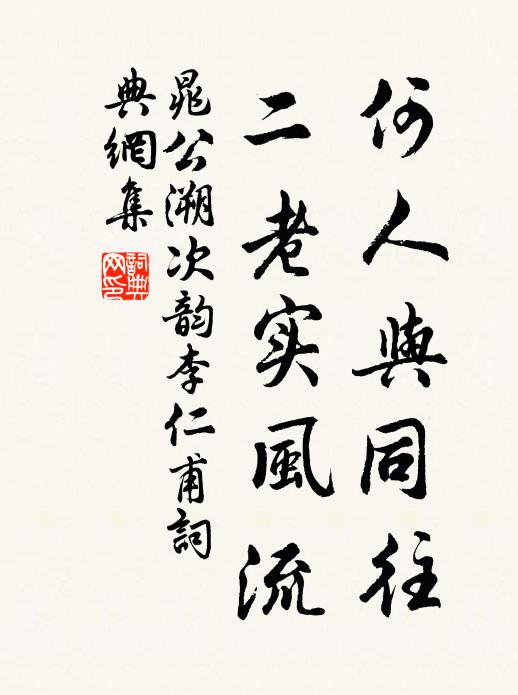 何人與同往
二老实風流
晁公溯次韵李仁甫詞
典網集
詞典
网印